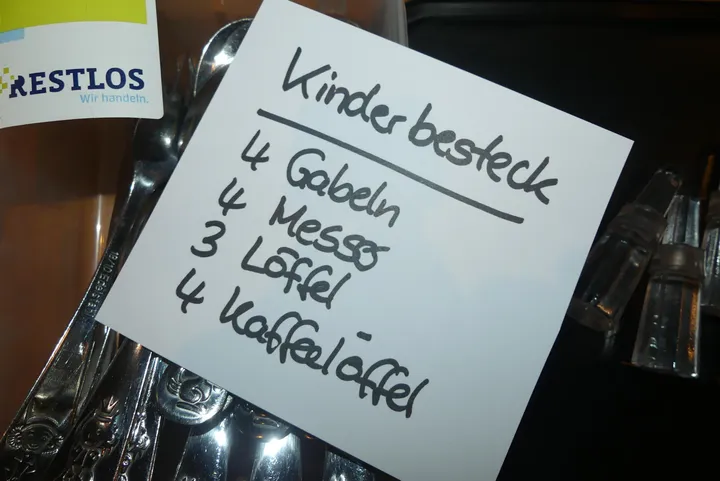 RESTLOS
Wir handeln.
Kinderbesteck
4 Gabeln
4 Messer
3 Löffel
4 Kaffeelöffel